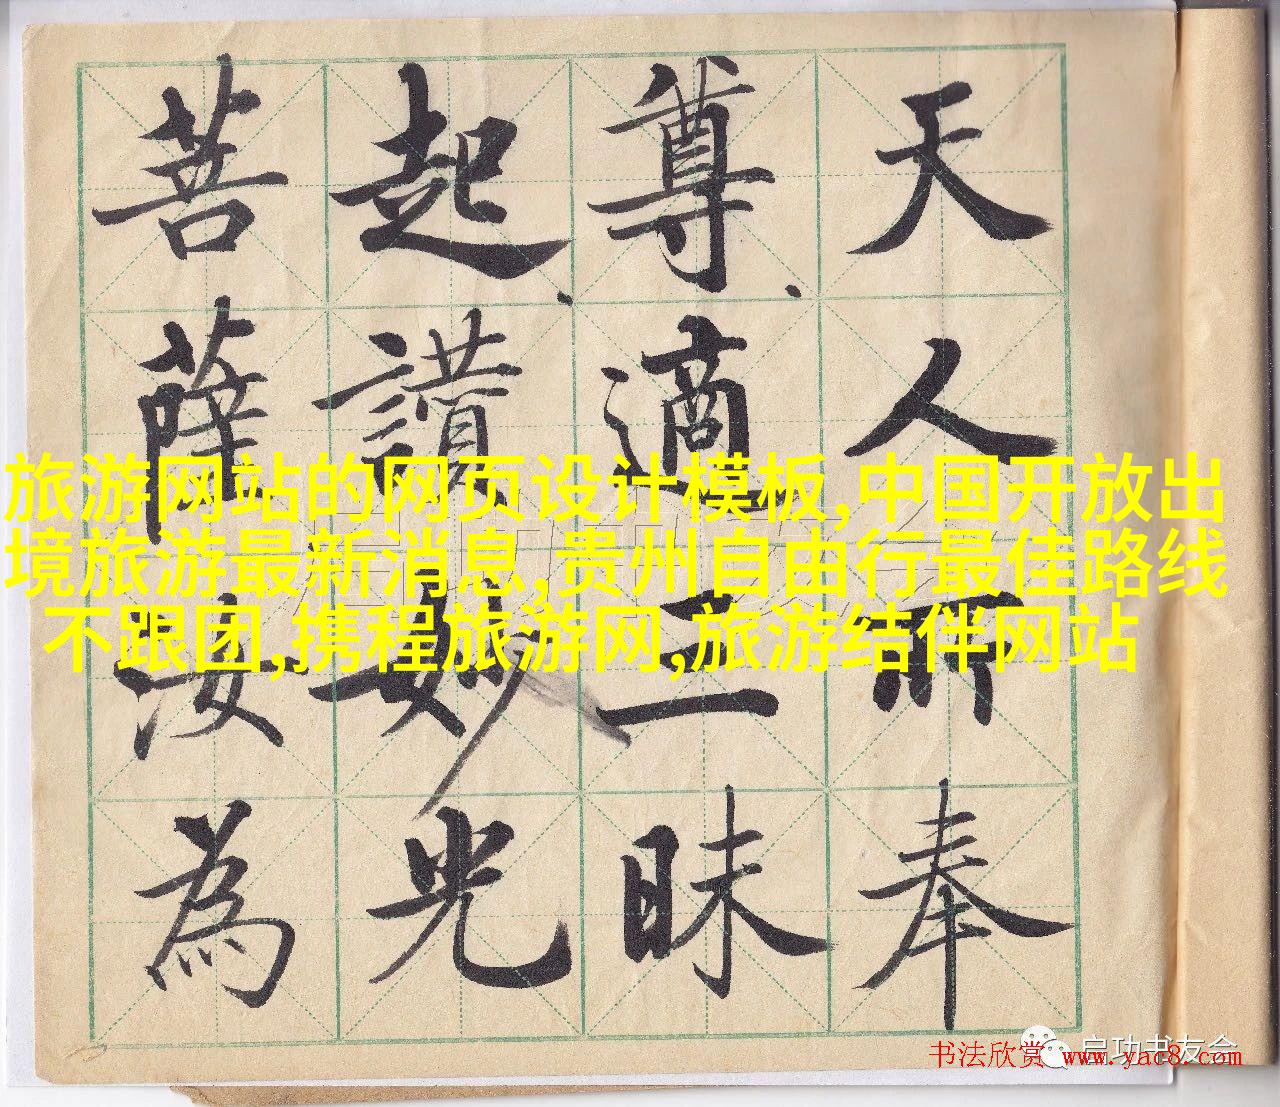 天人所奉
尊適三昧
起讃妙光
菩薩汝為
旅游网站的网页设计模板,中国开放出
境旅游最新消息,贵州自由行最佳路线
不跟团,携程旅游网,旅游结伴网站
启功书友会
书法欣赏 www.yac8.com